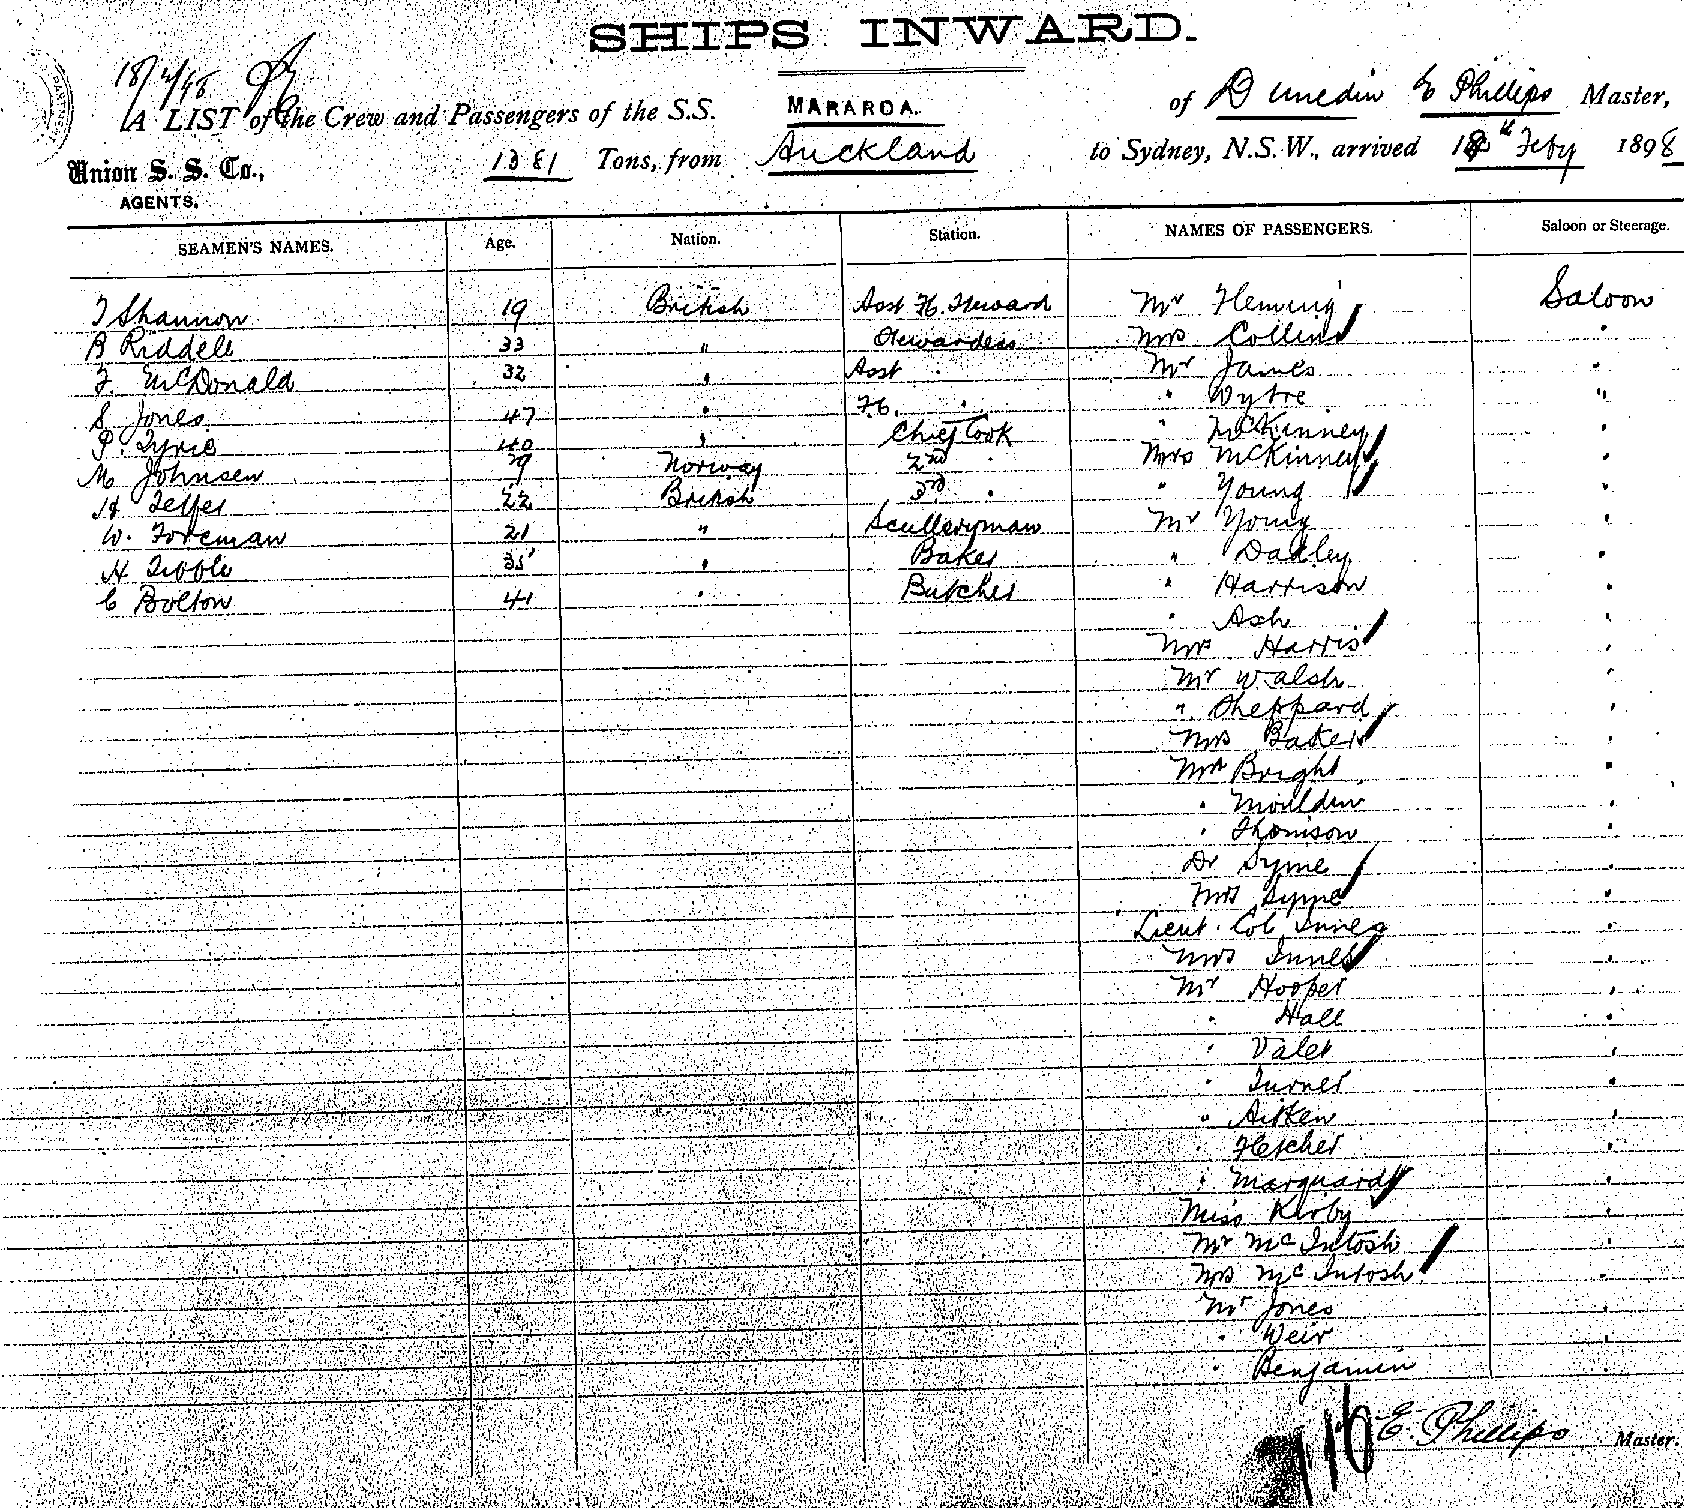 SHIPS INWARD.
18/2/98
A LIST of the Crew and Passengers of the S.S. MARAROA. of Dunedin E Phillips Master,
Union S. S. Co., 1381 Tons, from Auckland to Sydney, N.S.W., arrived 18th Feby 1898
AGENTS.
SEAMEN'S NAMES. Age. Nation. Station. NAMES OF PASSENGERS. Saloon or Steerage.
T Shannon 19 British Asst F. Steward Mr Fleming Saloon
B Riddell 33 " Stewardess Mrs Collins "
F. McDonald 32 " Asst " Mr James "
S Jones 47 " F.C. " " Wybre "
P. Tyrie 40 " Chief Cook " McKinney "
M Johnsen 29 Norway 2nd " Mrs McKinney "
H Telfer 22 British 3rd " " Young "
W. Foreman 21 " Sculleryman Mr Young "
H Tibble 35 " Baker " Dadley "
C Bolton 41 " Butcher " Harrison "
" Ash "
Mrs Harris "
Mr Walsh "
" Sheppard "
Mrs Baker "
Mr Bright "
" Mouldin "
" Thomson "
Dr Syme "
Mrs Syme "
Lieut. Col. Innes "
Mrs Innes "
Mr Hooper "
" Hall "
" Valer "
" Turner "
" Aitken "
" Fletcher "
" Marquardt "
Miss Kirby "
Mr McIntosh "
Mrs McIntosh "
Mr Jones "
" Weir "
" Benjamin "
116 E. Phillips Master.